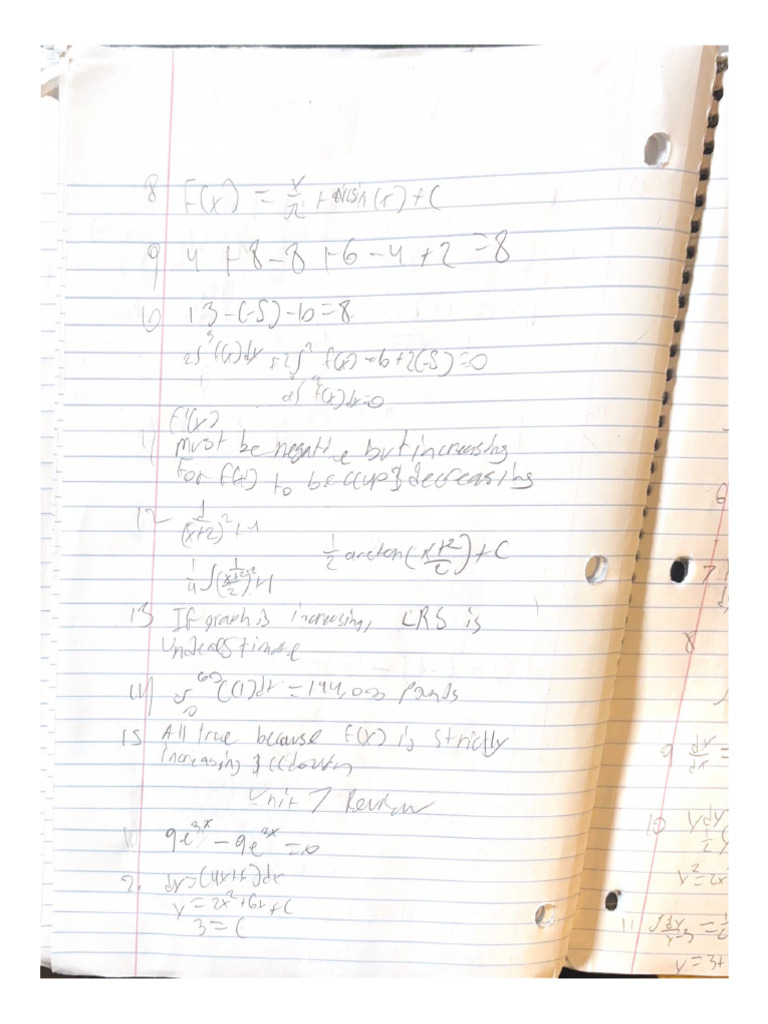 8 F(x) = x/π + arcsin(x) + C
9 4 + 8 - 8 + 6 - 4 + 2 = 8
10 13 - (-5) - 10 = 8
2∫ f(x) dx + 2∫ f(x) = 6 + 2(-5) = 0
2∫ f(x) dx = 0
F'(x)
11 must be negative but increasing
for f(x) to be ccup & decreasing
12 1/((x+2)² + 4
1/4 ∫ 1/((x+2)/2)² + 1
1/2 arctan((x+2)/2) + C
13 If graph is increasing, LRS is
underestimate
14 ∫ C(t) dt = 144,000 Pounds
15 All true because f(x) is strictly
increasing & ccdown
Unit 7 Review
1. 9e^3x - 9e^3x = 0
2. dy = (4x+6) dx
y = 2x² + 6x + C
3 = C
6
7
8
9 dy/dx =
10 y dy
y² = 2x
11 ∫ dy/(y-3) = 1/2
y = 3+